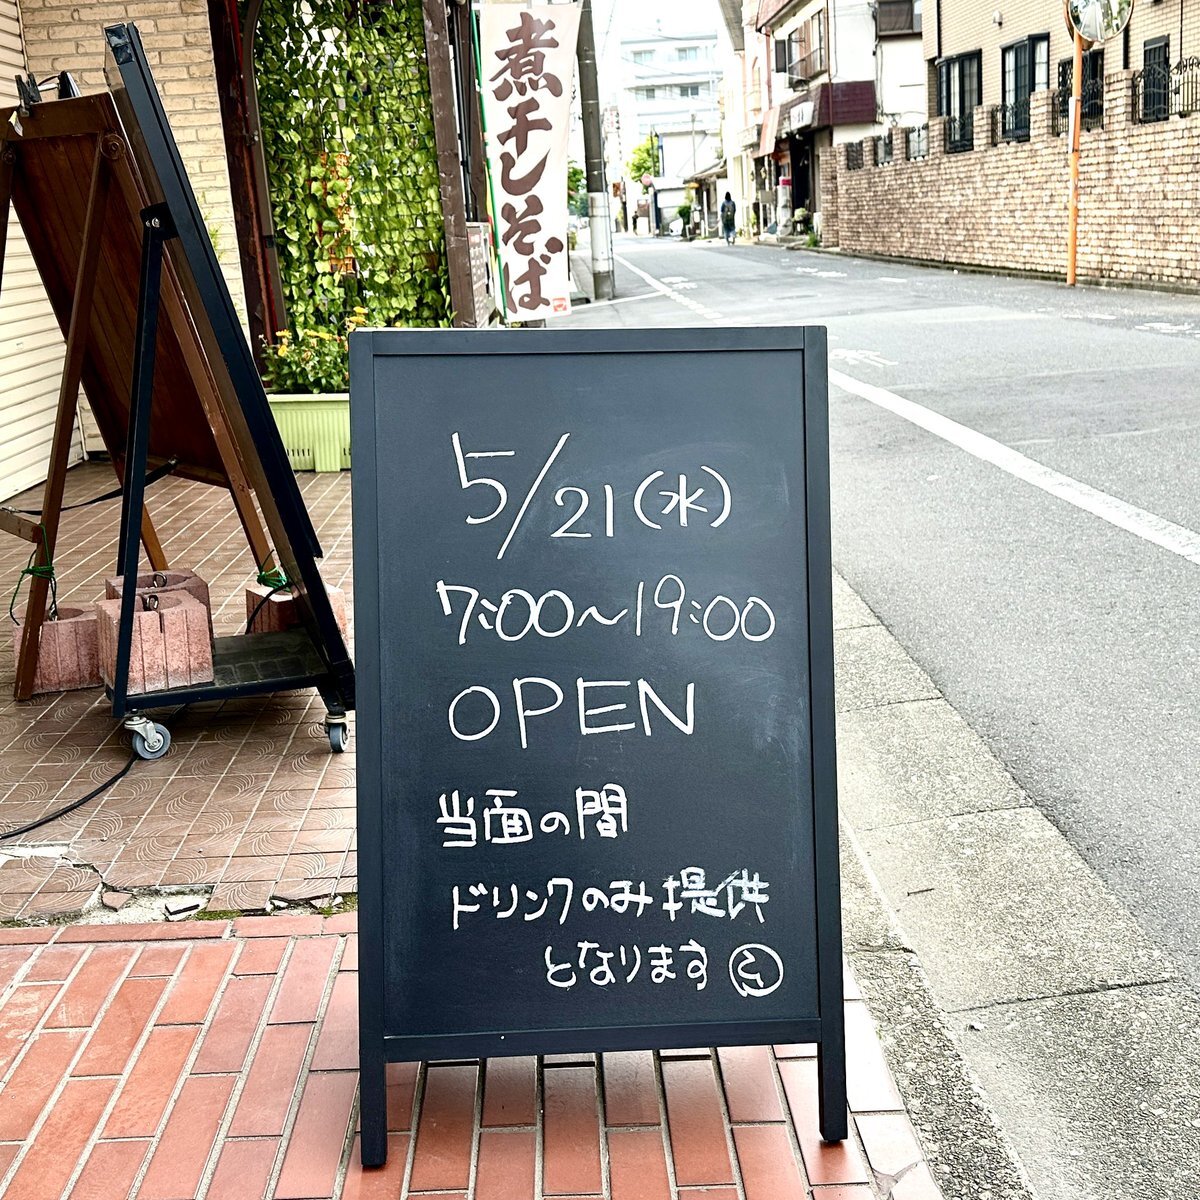 煮干しそば
5/21(水)
7:00~19:00
OPEN
当面の間
ドリンクのみ提供
となります